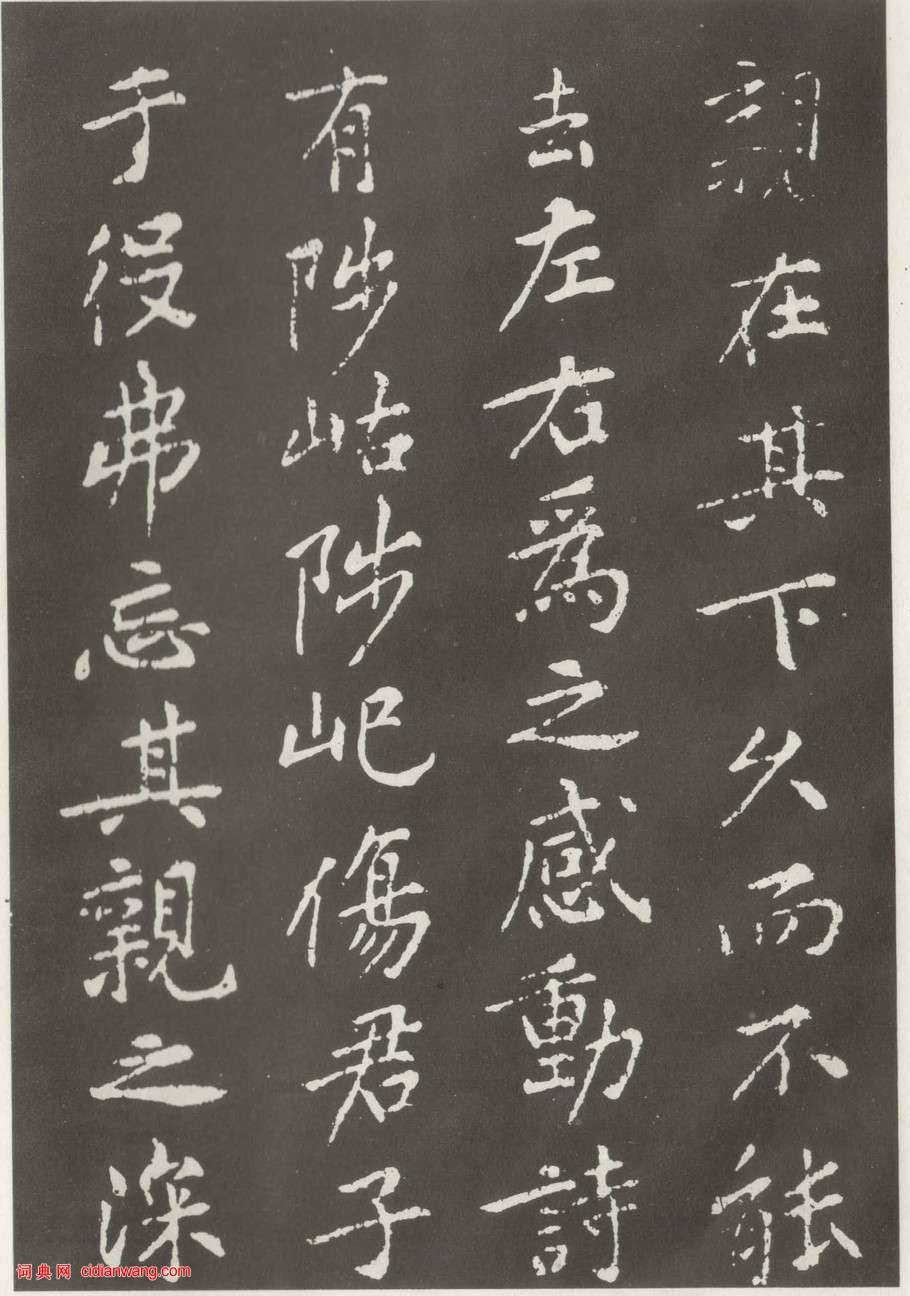 親在其下久而不能
去左右為之感動詩
有陟岵陟屺傷君子
于役弗忘其親之深
词典网 cidianwang.com